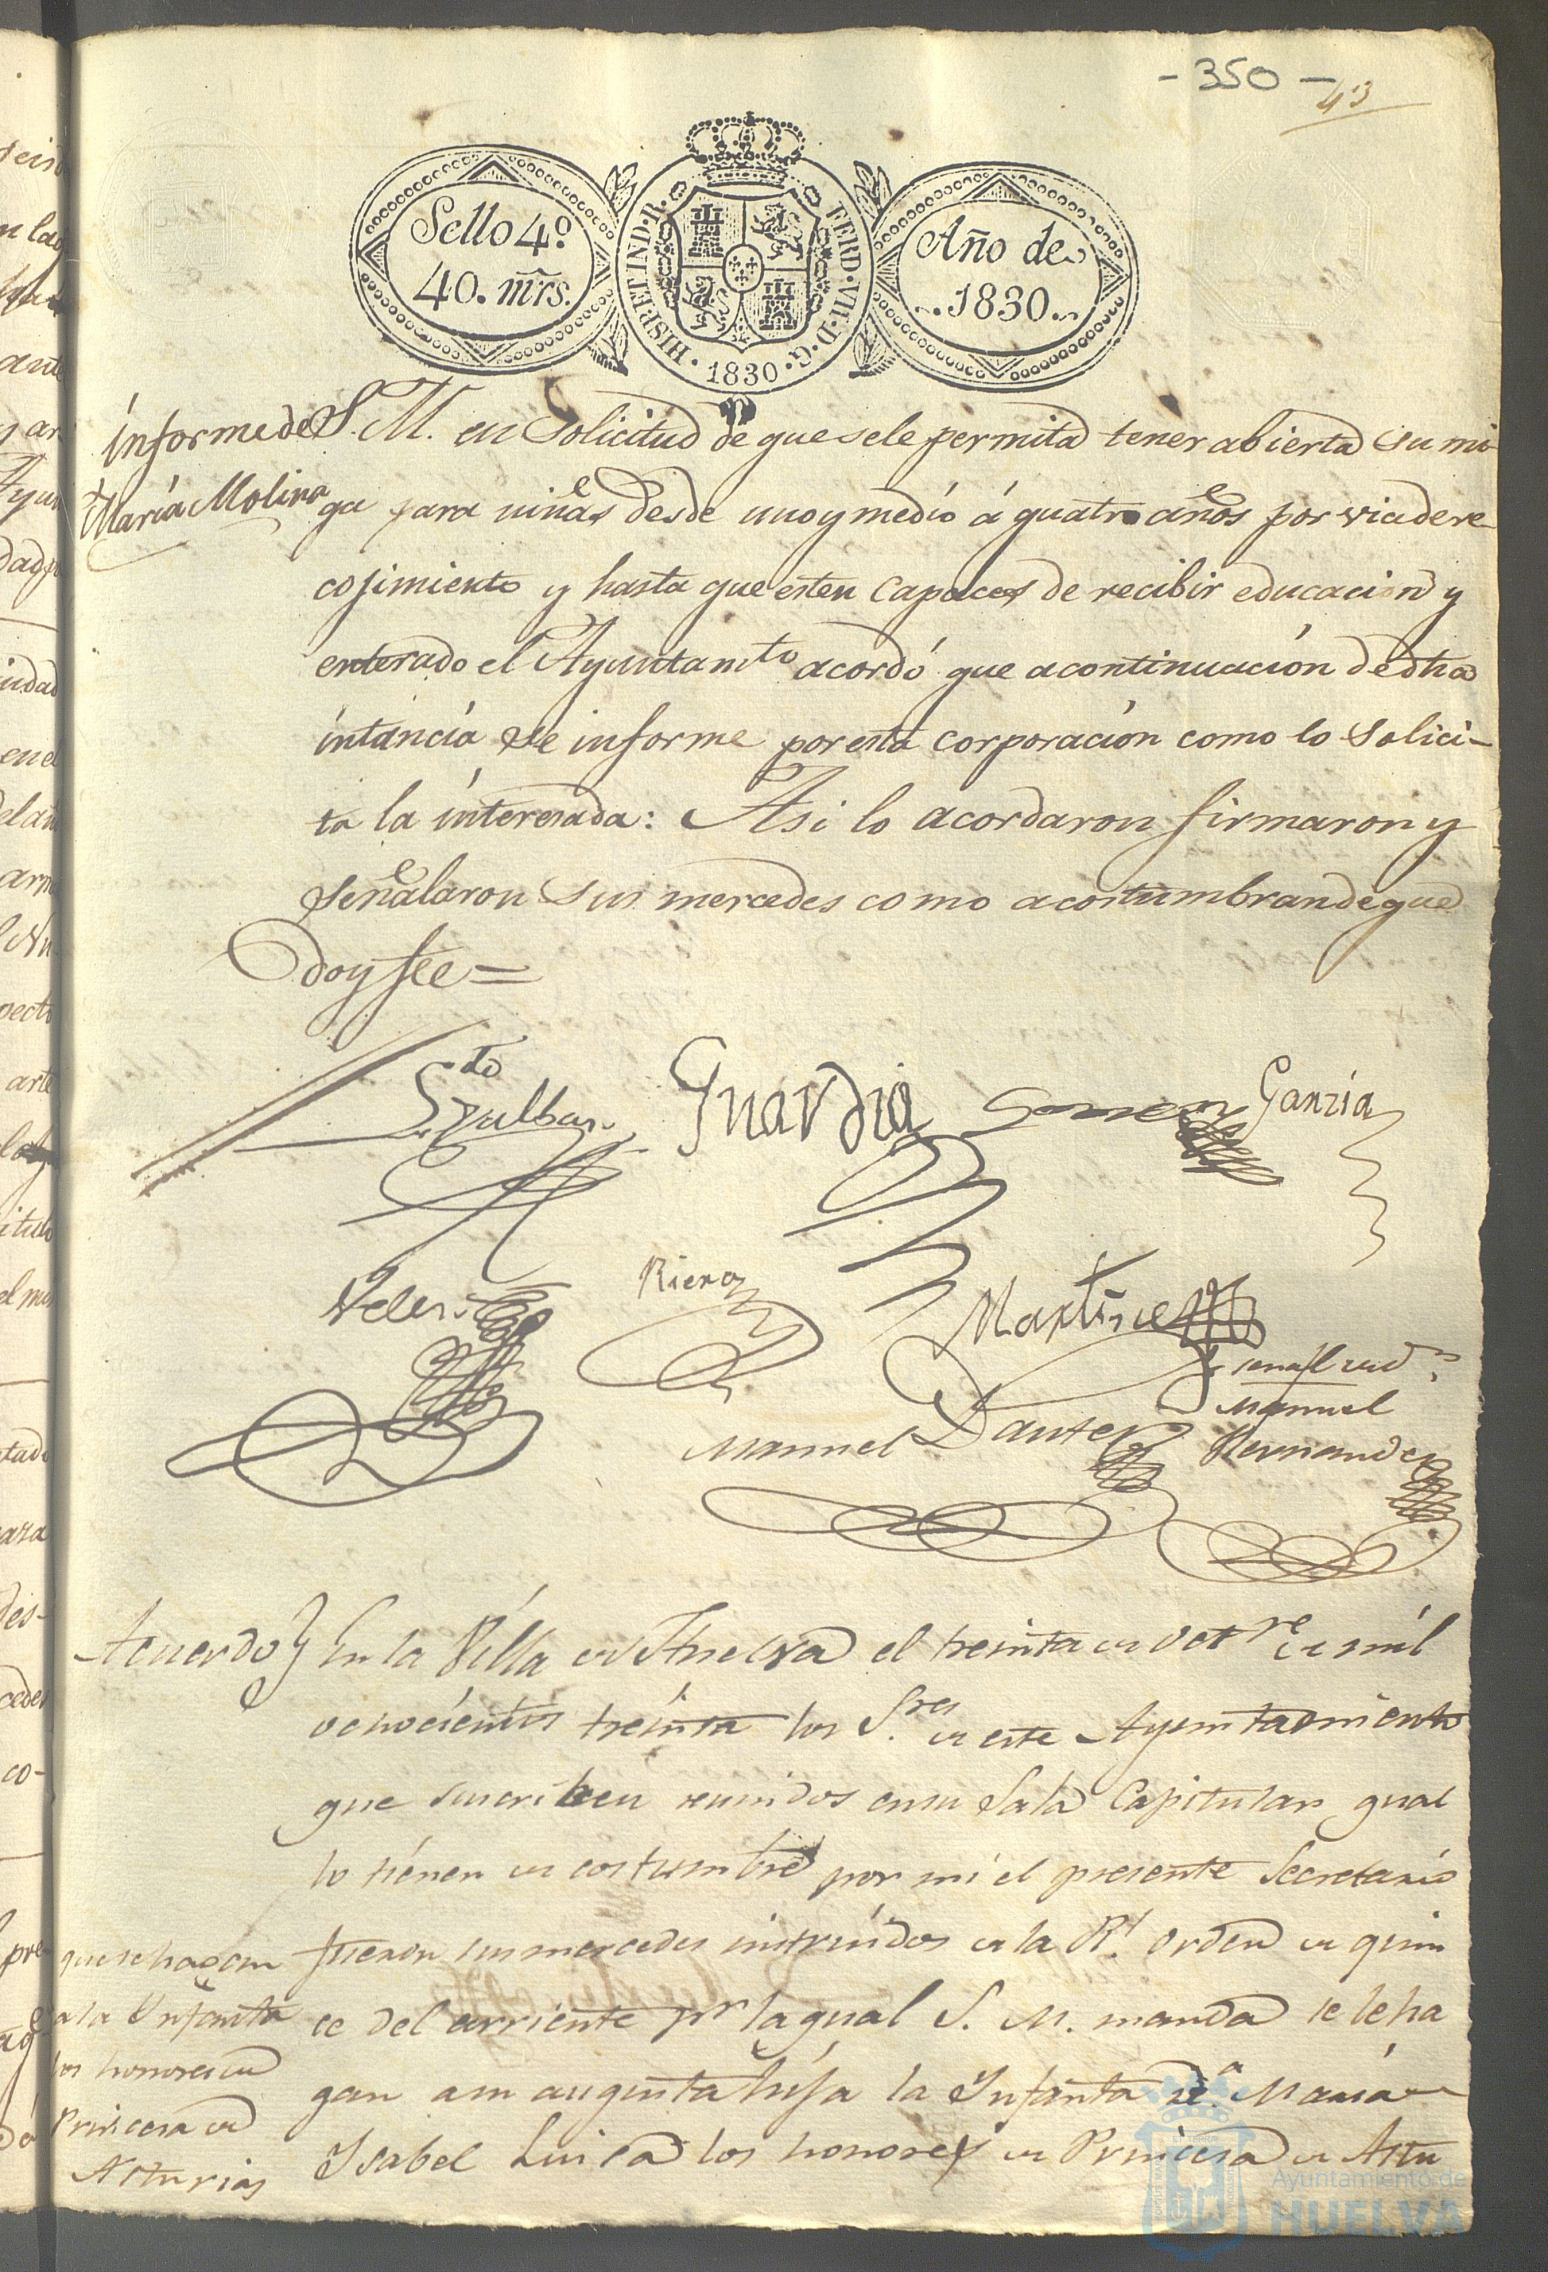 - 350 -
43
Sello 4º
40. mrs.
HISP. ET IND. R.
FERD. VII. D. G.
1830
Año de
1830.
informe de
María Molina
S. M. en Solicitud de que sele permita tener abierta su mi-
ga para niñas desde uno y medio á quatro años por via de re-
cojimiento y hasta que esten capaces de recibir educacion y
enterado el Ayuntamto acordó que acontinuación de dha
intancia se informe por esta corporación como lo solici-
ta la interesada: Asi lo acordaron firmaron y
señalaron sus mercedes como acostumbran de que
doy fee =
Guardia
Garzia
Velez
Riera
Martinez
Manuel
Manuel Dantes
Hernandez
Acuerdo
En la Villa de Huelva el treinta de Octre de mil
ochocientos treinta los Sres de este Ayuntamiento
que suscriben reunidos en su Sala Capitular qual
lo tienen de costumbre por mi el presente Secretario
fueron sus mercedes instruidos de la Rl orden de quin
ce del corriente pr la qual S. M. manda se le ha
gan a su augusta hija la Infanta Da. Maria
Isabel Luisa los honores de Princesa de Astu
que se hagan
a la Infanta
los honores de
Princesa de
Asturias
Ayuntamiento de
HUELVA